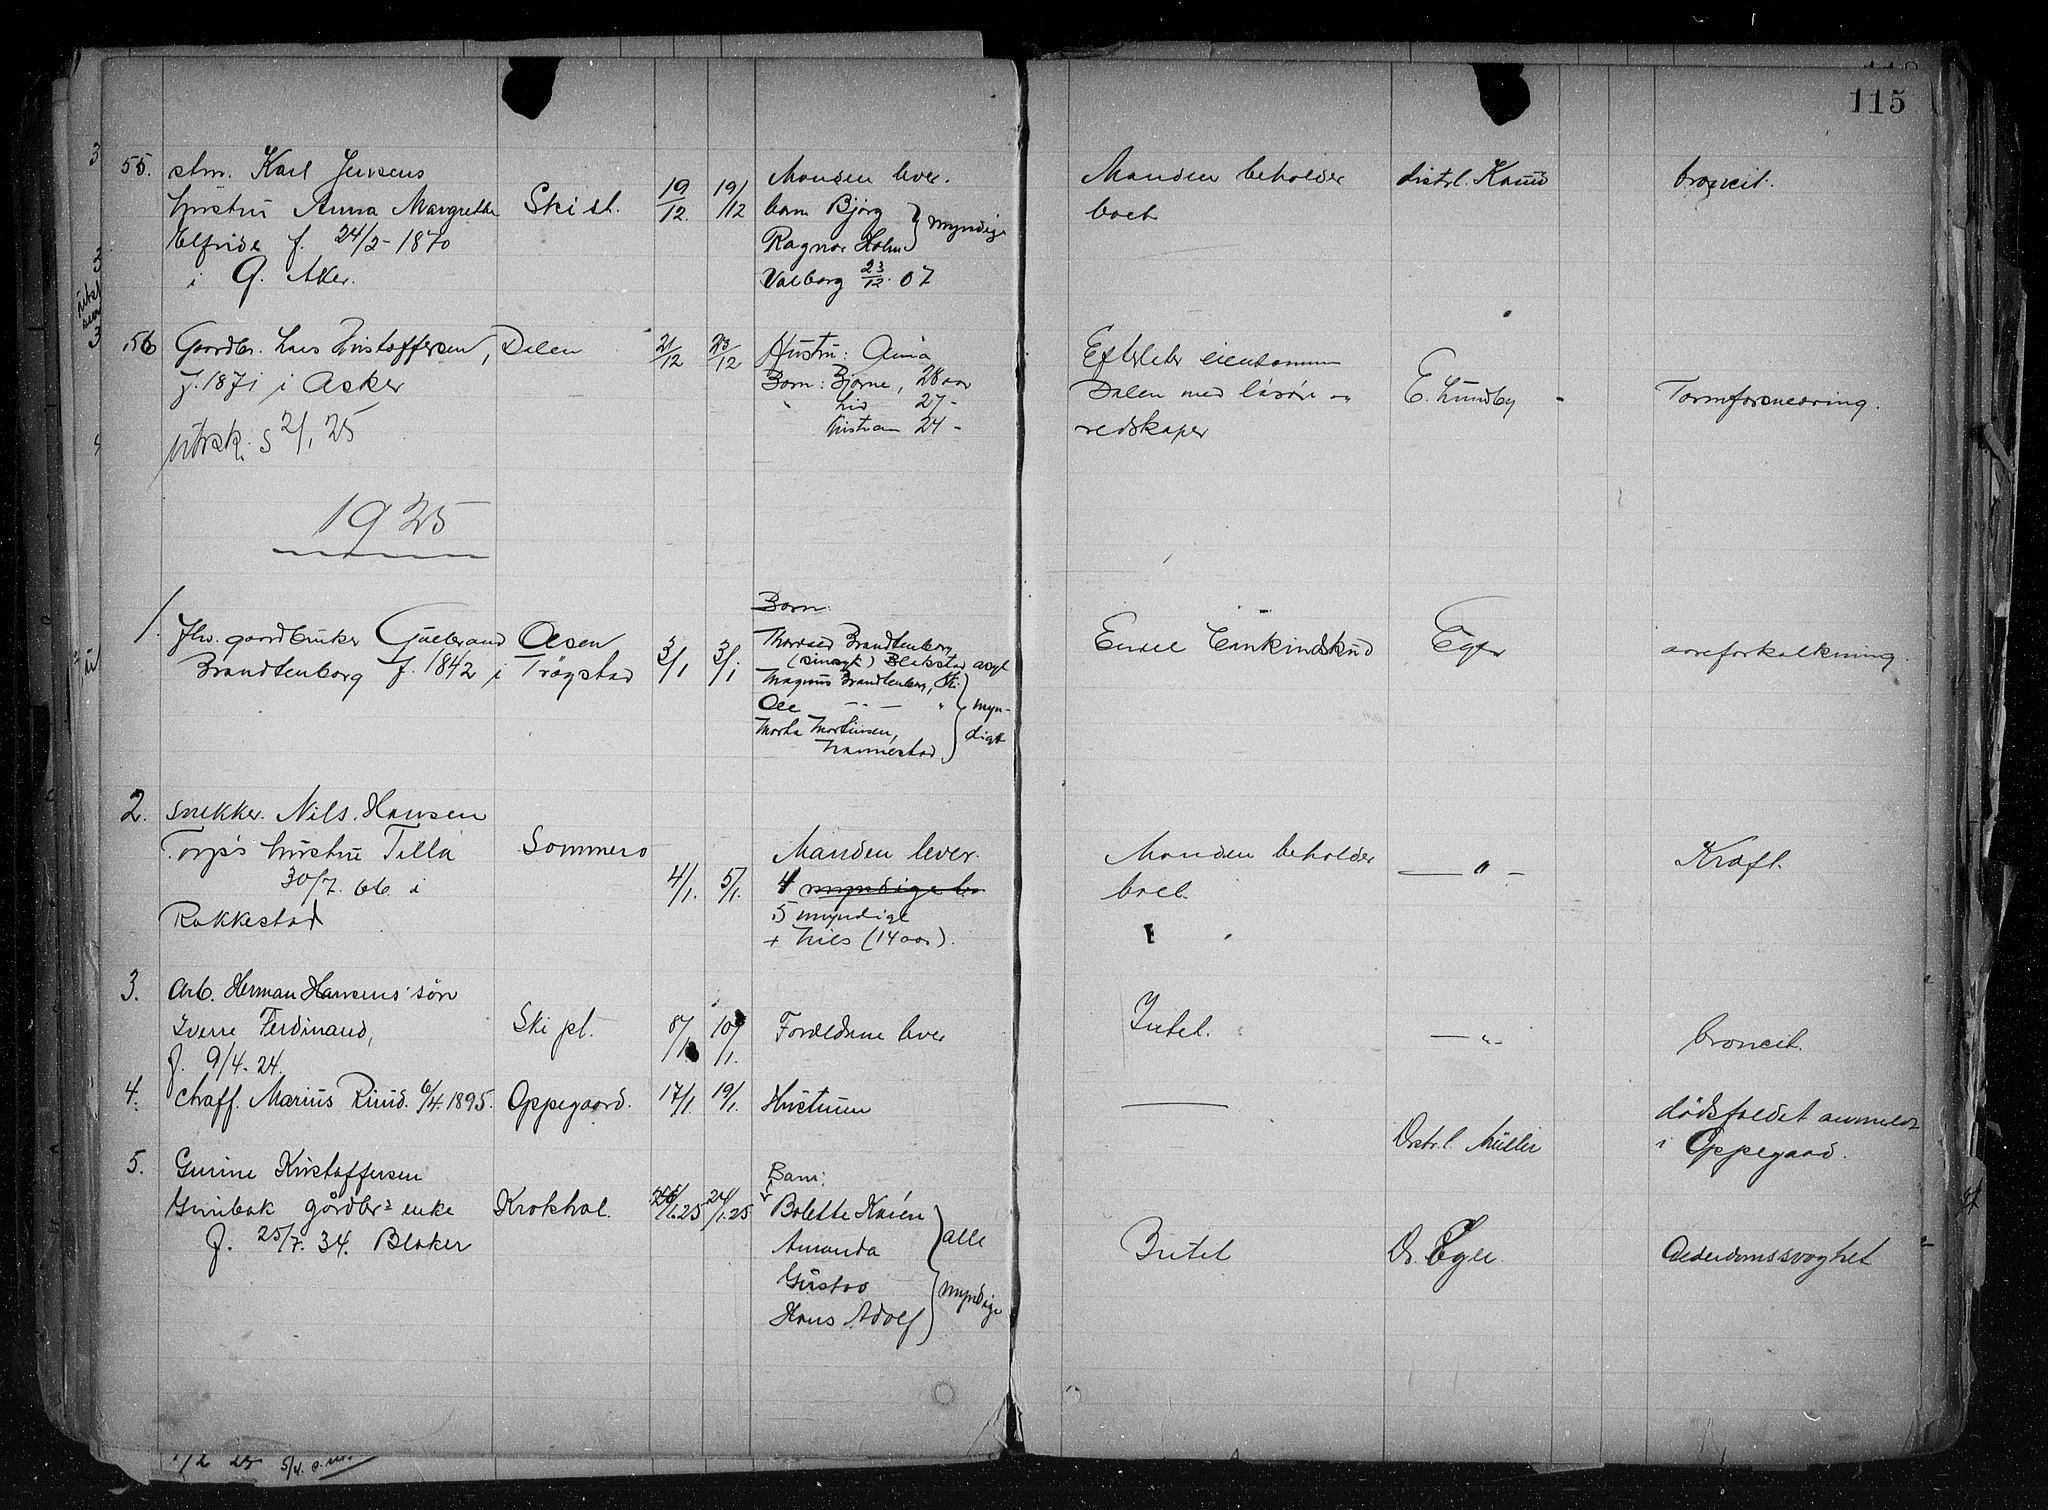 115
55. stm. Karl Jensens
hustru Anna Margrethe
Elfride f. 24/2-1870
i Ø. Aker.
Ski st.
19/12. 19/12
Manden lever.
barn Bjørg
Ragnar Holm } myndige
Valborg 23/12. 07
Manden beholder
boet
distrl. Knud
broncit.
56 Gaardbr. Lars Kristoffersen, Dalen
f. 1871 i Asker
Utsk. s 2/1 25
21/12 23/12
Hustru: Anna
Barn: Bjarne, 28 aar
27 -
Kristian 24 -
Efterlater eiendommen
Dalen med løsøre og
redskaper
E. Lundby
Tarmforsnevring.
1925
1. fhv. gaardbruker Gulbrand Olsen
Brandtenborg f. 1842 i Trøgstad
3/1 3/1
Barn:
Thorvald Brandtenborg
(sinsyk) Blakstad asyl
Magnus Brandtenborg, Ski
Ole — " — " } myn-
Marta Mortinsen, } digt
Navnestad
Endel
Eger
aareforkalkning.
2. snekker. Nils. Hansen
Torps hustru Tilla
30/7. 66. i
Rakkestad
Sommero
4/1. 5/1.
Manden lever.
4 myndige
5 myndige
+ Nils (14 aar).
Manden beholder
boet.
— " —
Kræft.
3. Arb. Herman Hansens søn
Sverre Ferdinand,
f. 9/4. 24.
Ski pl.
8/1 10/1.
Forældrene lever
Intet.
— " —
broncit.
4. chaff. Marius Rud. 6/4. 1895.
Oppegaard.
17/1. 19/1.
Hustruen
———
dødsfaldet anmeldt
i Oppegaard.
Distr.l. Müller
5. Gurine Kristoffersen
gårdbr. enke
f. 25/7. 34. Blaker
Krokhol.
/1.25 24/1.25
Barn:
Bolette Karén
Amanda } alle
Gustav
Hans Adolf } myndige
Intet
Dr. Eger.
Alderdomssvaghet